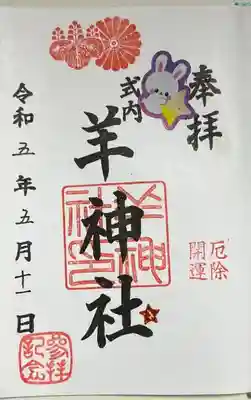 奉拝
式内
羊神社
厄除
開運
令和五年五月十一日
羊神社印
参拝記念